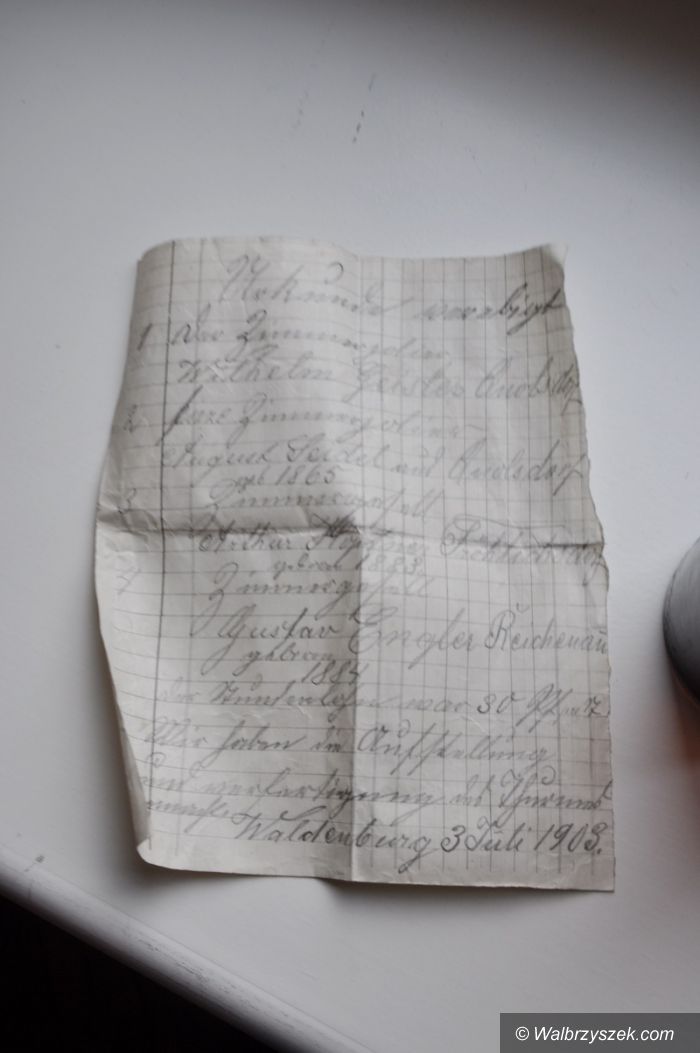 Urkunde
1 Der Zimmerpolier
Wilhelm Geisler
2 Zimmerpolier
August Seidel aus
geb 1865
3 Zimmergesell
Arthur
geboren 1883
4 Zimmergesell
Gustav Engler Reichenau
geboren
1884
Der Stundenlohn war 30
Wir haben die Aufstellung
und verfertigung des Thurmes
Waldenburg 3 Juli 1903.
© Walbrzyszek.com